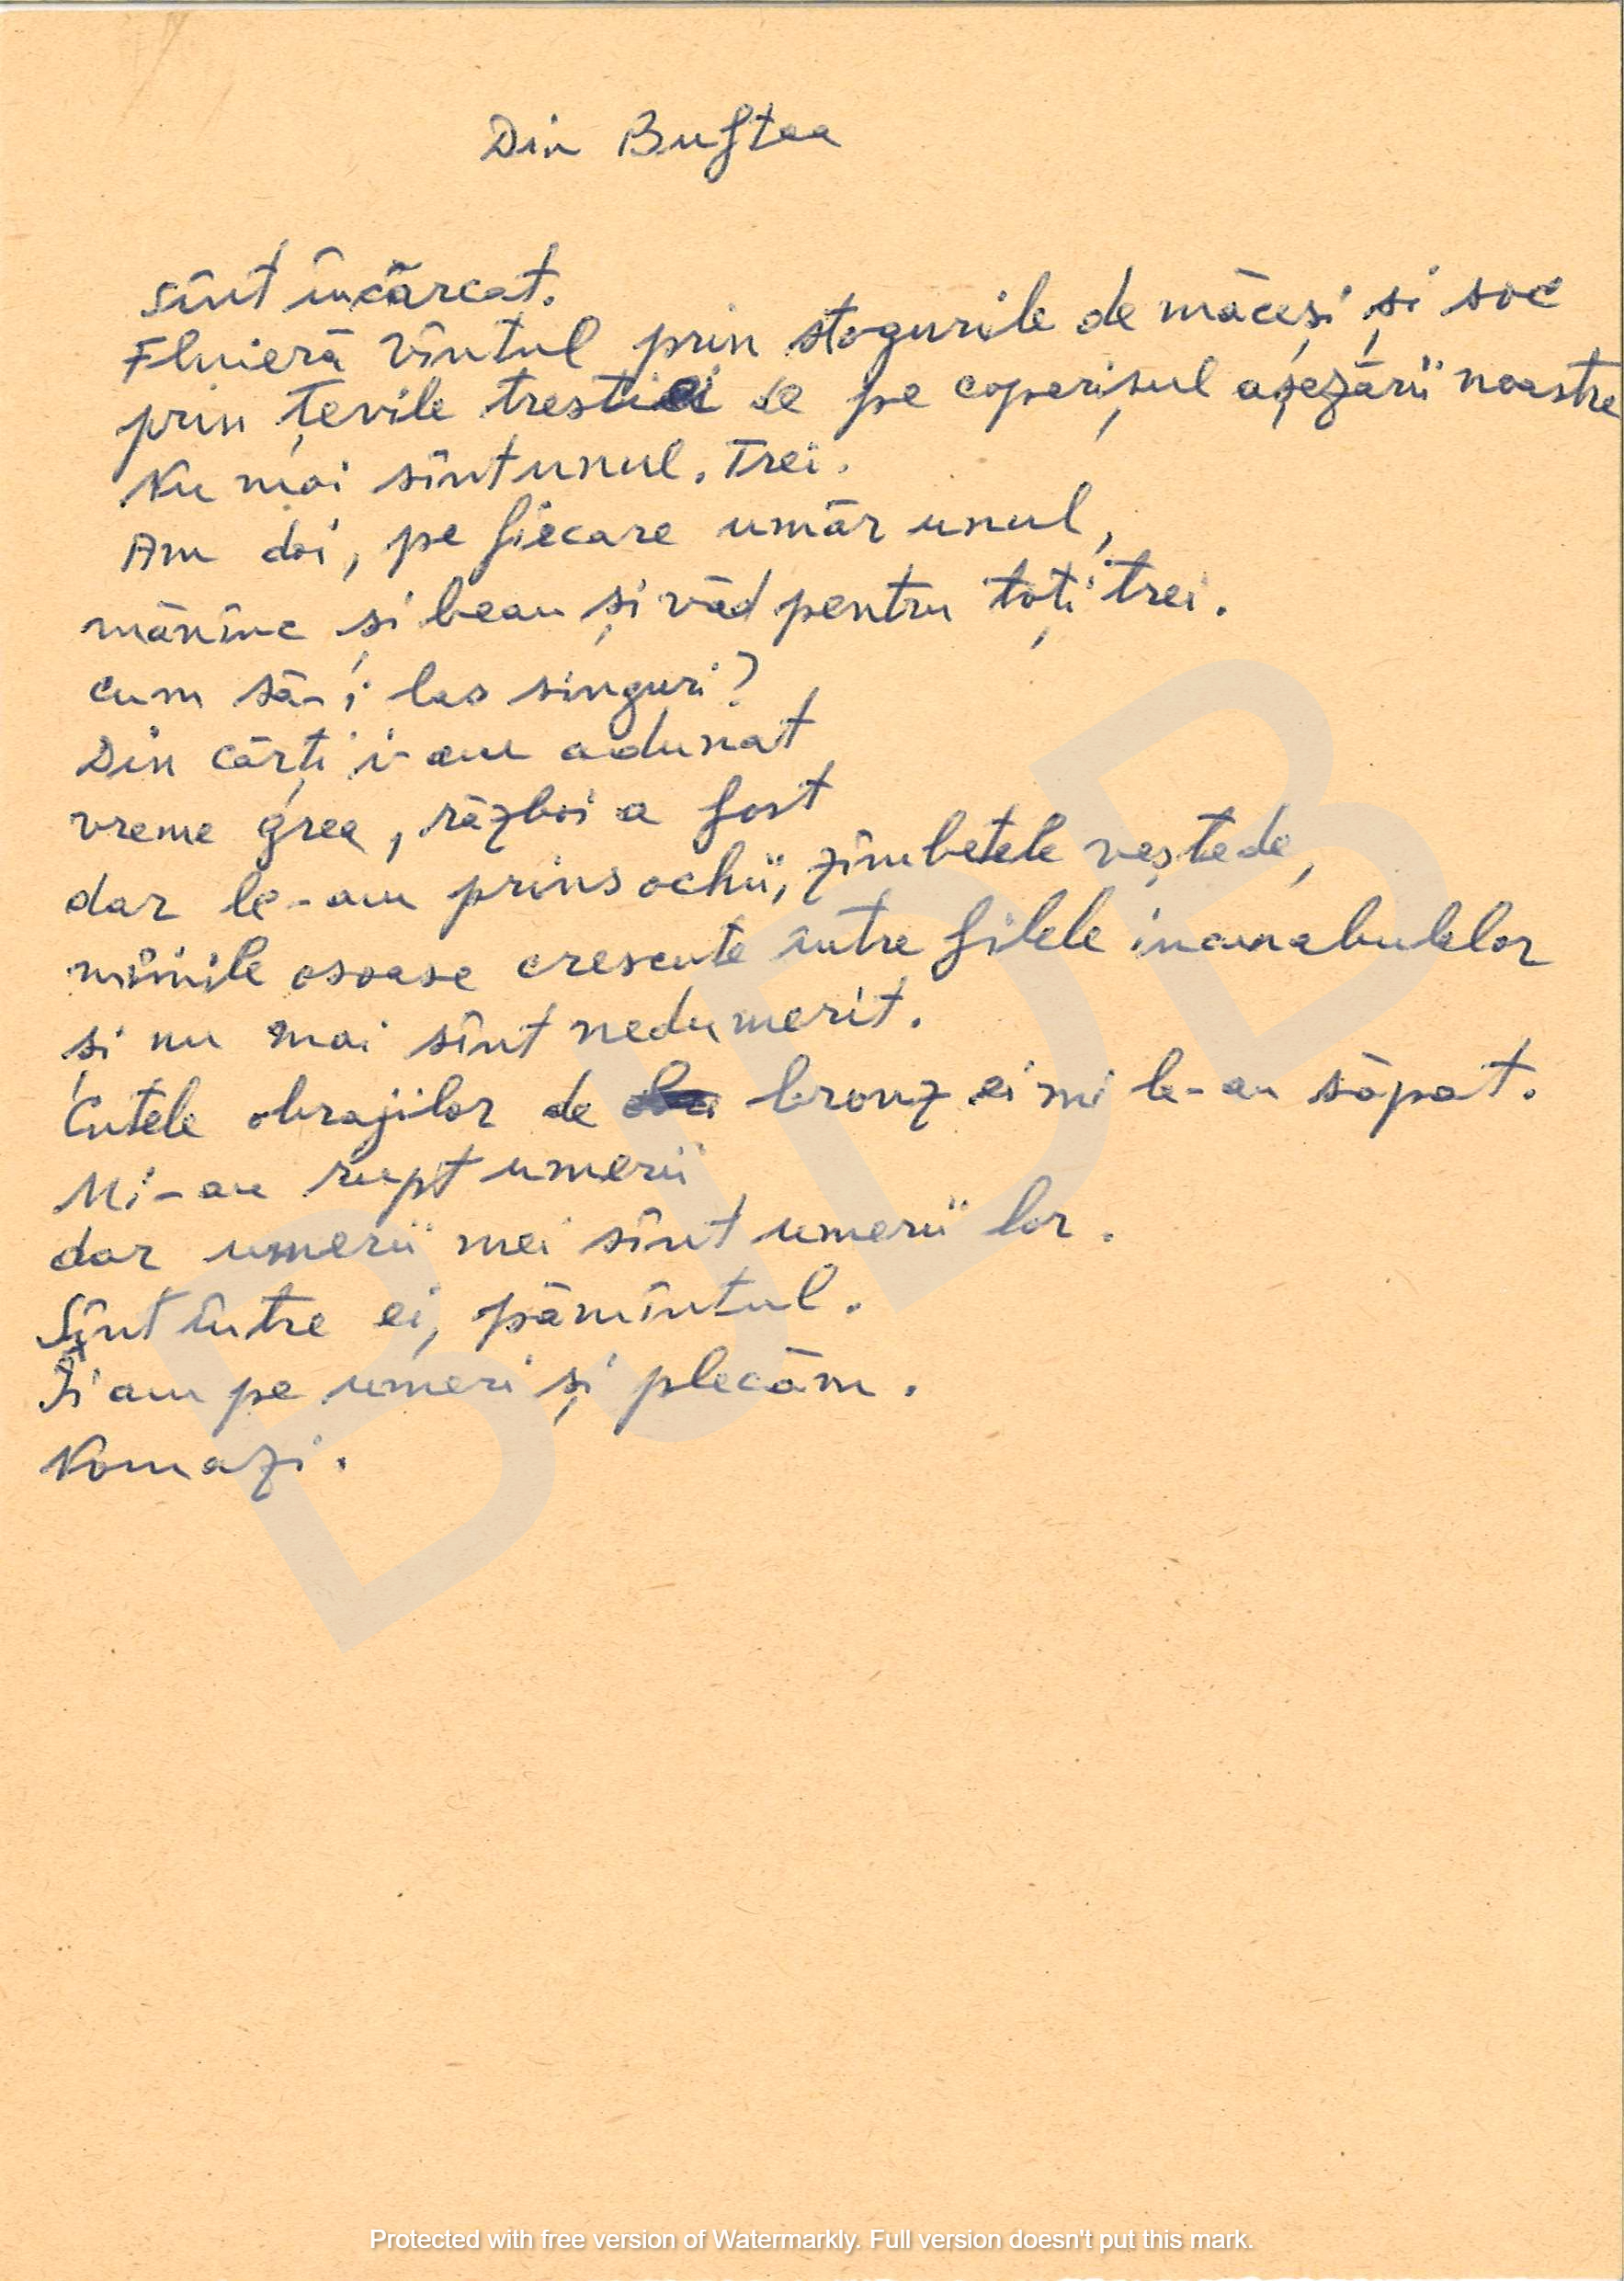 Din Buftea
Sînt încărcat.
Fluieră vîntul prin stogurile de măceși și soc
prin țevile trestiei de pe coperișul așezării noastre
Nu mai sînt unul. Trei.
Am doi, pe fiecare umăr unul,
mănînc și beau și văd pentru toți trei.
Cum să-i las singuri?
Din cărți i-am adunat
vreme grea, război a fost
dar le-am prins ochii, zîmbetele veștede,
mîinile osoase crescute între filele incunabulelor
și nu mai sînt nedumerit.
Cutele obrajilor de bronz ei mi le-au săpat.
Mi-au rupt umerii
dar umerii mei sînt umerii lor.
Sînt între ei, pămîntul.
Îi am pe umeri și plecăm.
Nomazi.
BJDB
Protected with free version of Watermarkly. Full version doesn't put this mark.